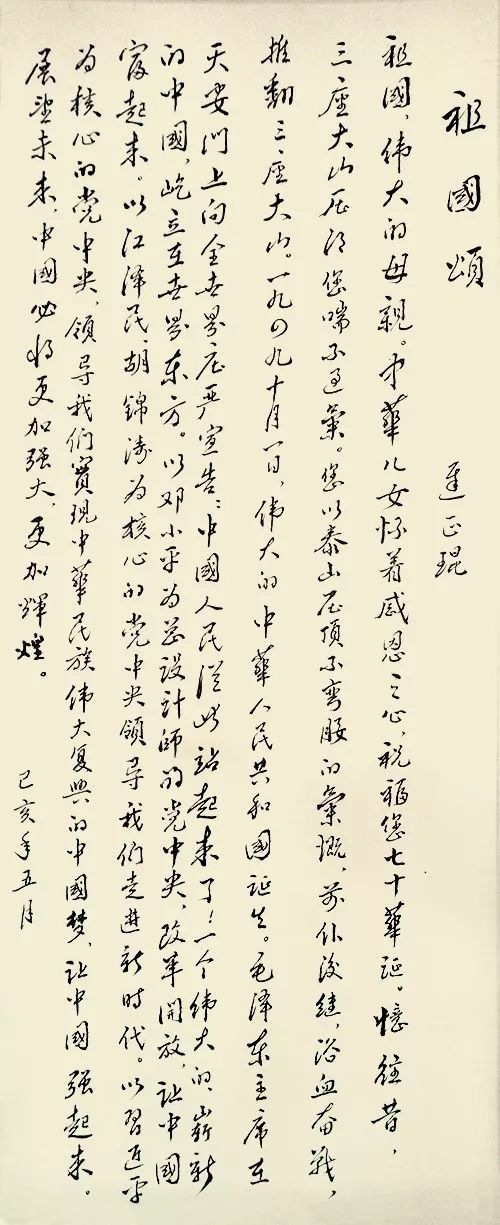 祖國頌
正琨
祖國,伟大的母親。中華儿女怀着感恩之心,祝福您七十華诞。憶往昔,
三座大山压得您喘不过氣。您以泰山压頂不弯腰的氣概,前仆後继,浴血奋战,
推翻三座大山。一九四九十月一日,伟大的中華人民共和國诞生。毛泽东主席在
天安门上向全世界庄严宣告:中國人民從此站起来了!一个伟大的、崭新
的中國,屹立在世界东方。以邓小平为总设计師的党中央,改革開放,让中國
富起来。以江泽民、胡錦涛为核心的党中央領导我们走進新時代。以習近平
为核心的党中央,領导我们實現中華民族伟大复興的中國梦,让中國强起来。
展望未来,中國必将更加强大,更加輝煌。
己亥年五月